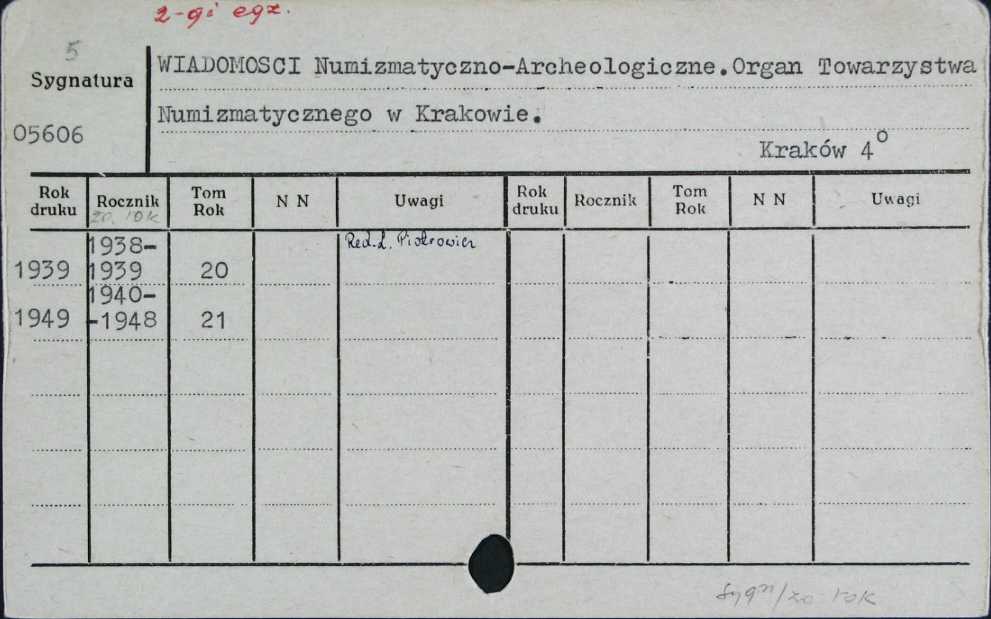 2-gi egz.
5
Sygnatura
05606
WIADOMOSCI Numizmatyczno-Archeologiczne.Organ Towarzystwa
Numizmatycznego w Krakowie.
Kraków 4°
Rok druku Rocznik Tom Rok N N Uwagi Rok druku Rocznik Tom Rok N N Uwagi
za rok
1939 1938-1939 20 Red. L. Piotrowicz
1949 1940--1948 21
sygn/za rok